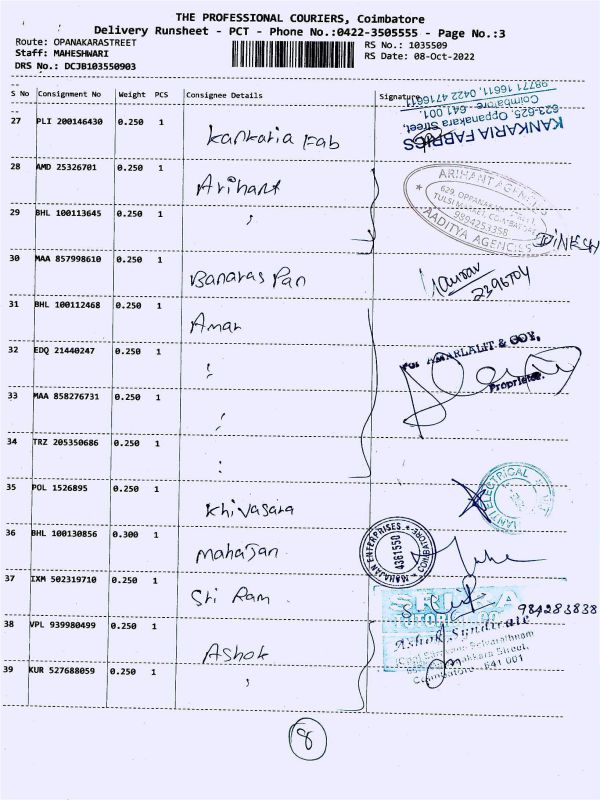 THE PROFESSIONAL COURIERS, Coimbatore
Delivery Runsheet - PCT - Phone No.:0422-3505555 - Page No.:3
Route: OPANAKARASTREET
Staff: MAHESHWARI
DRS No.: DCJB103550903
RS No.: 1035509
RS Date: 08-Oct-2022
S No Consignment No Weight PCS Consignee Details Signature
27 PLI 200146430 0.250 1 Kankaria Fab
KANKARIA FABRICS
623-625, Oppanakara Street,
Coimbatore - 641 001.
98771 16611, 0422 4716611
28 AMD 25326701 0.250 1 Arihant
29 BHL 100113645 0.250 1 "
ARIHANT AGENCIES
629, OPPANAKARA STREET
TULSI MARKET, COIMBATORE
9894253358
AADITYA AGENCIES
DINESH
30 MAA 857998610 0.250 1 Banaras Pan
2396704
31 BHL 100112468 0.250 1 Amar
32 EDQ 21440247 0.250 1 "
For AMARLALIT & COY,
Proprietor.
33 MAA 858276731 0.250 1 "
34 TRZ 205350686 0.250 1 "
35 POL 1526895 0.250 1 Khivasara
ELECTRICAL
36 BHL 100130856 0.300 1 Mahajan
MAHAJAN ENTERPRISES
4361550
COIMBATORE
37 IXM 502319710 0.250 1 Sri Ram
984283838
38 VPL 939980499 0.250 1 Ashok
Ashok Syndicate
Street,
Coimbatore - 641 001
39 KUR 527688059 0.250 1 "
8